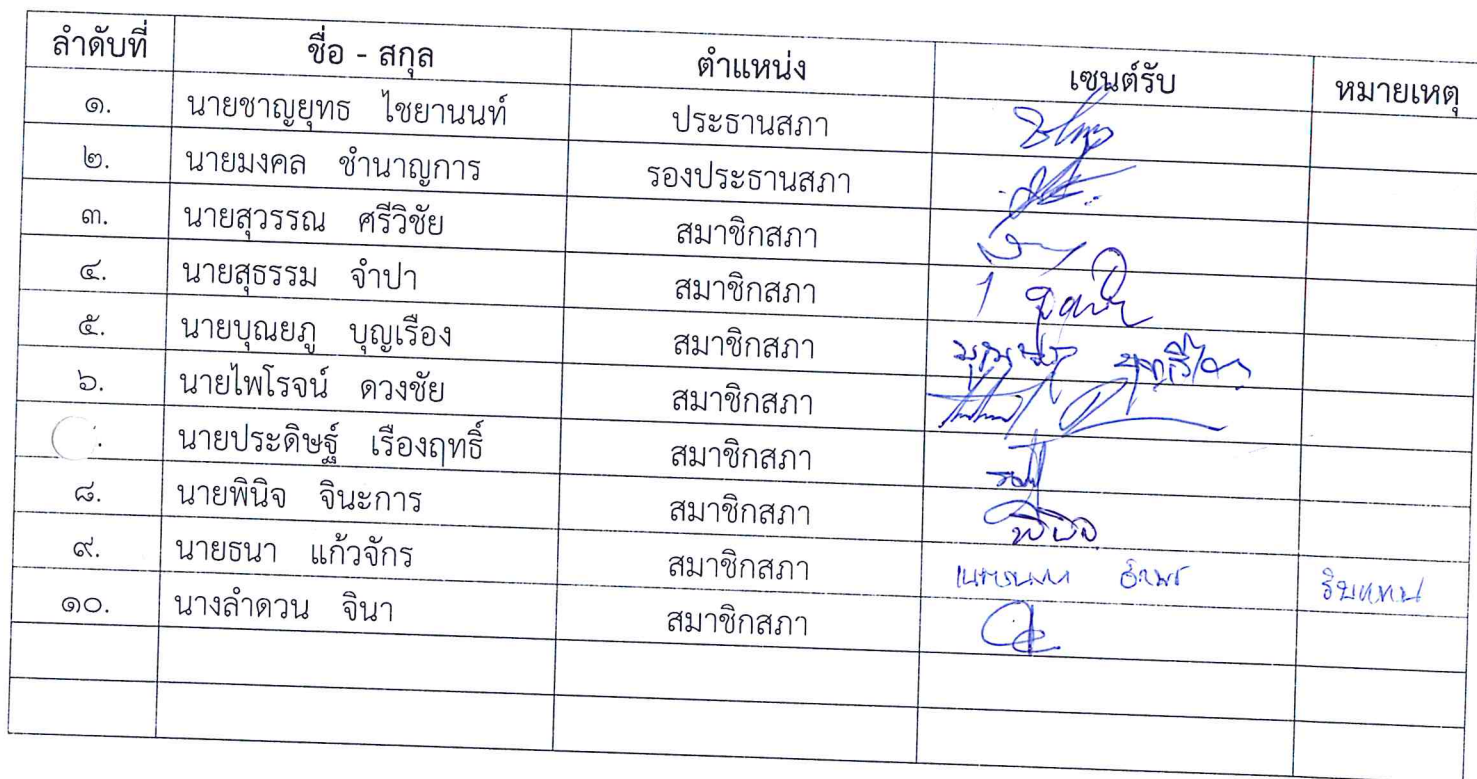 ลำดับที่ ชื่อ - สกุล ตำแหน่ง เซนต์รับ หมายเหตุ
๑. นายชาญยุทธ ไชยานนท์ ประธานสภา
๒. นายมงคล ชำนาญการ รองประธานสภา
๓. นายสุวรรณ ศรีวิชัย สมาชิกสภา
๔. นายสุธรรม จำปา สมาชิกสภา
๕. นายบุณยภู บุญเรือง สมาชิกสภา
๖. นายไพโรจน์ ดวงชัย สมาชิกสภา
นายประดิษฐ์ เรืองฤทธิ์ สมาชิกสภา
๘. นายพินิจ จินะการ สมาชิกสภา พินิจ
๙. นายธนา แก้วจักร สมาชิกสภา รับแทน
๑๐. นางลำดวน จินา สมาชิกสภา